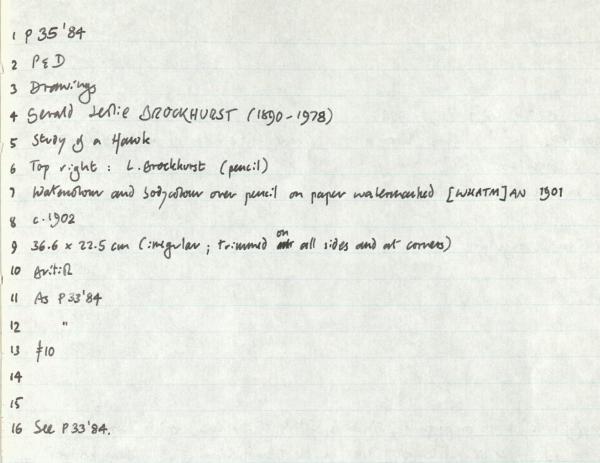 1 P 35'84
2 P&D
3 Drawings
4 Gerald Leslie BROCKHURST (1890-1978)
5 Study of a Hawk
6 Top right : L. Brockhurst (pencil)
7 Watercolour and bodycolour over pencil on paper watermarked [WHATM]AN 1901
8 c.1902
9 36.6 x 22.5 cm (irregular ; trimmed on all sides and at corners)
10 British
11 As P 33'84
12 "
13 £10
14
15
16 See P 33'84.